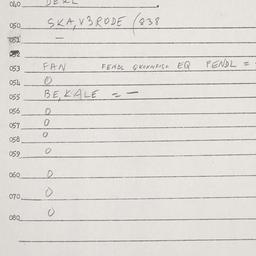 040
050 SKA,V3RODE (838
051 —
052
053 FAN FENDL EQ PENDL =
054 0
055 BE,KALE = —
056 0
057 0
058 0
059 0
060 0
070 0
080 0